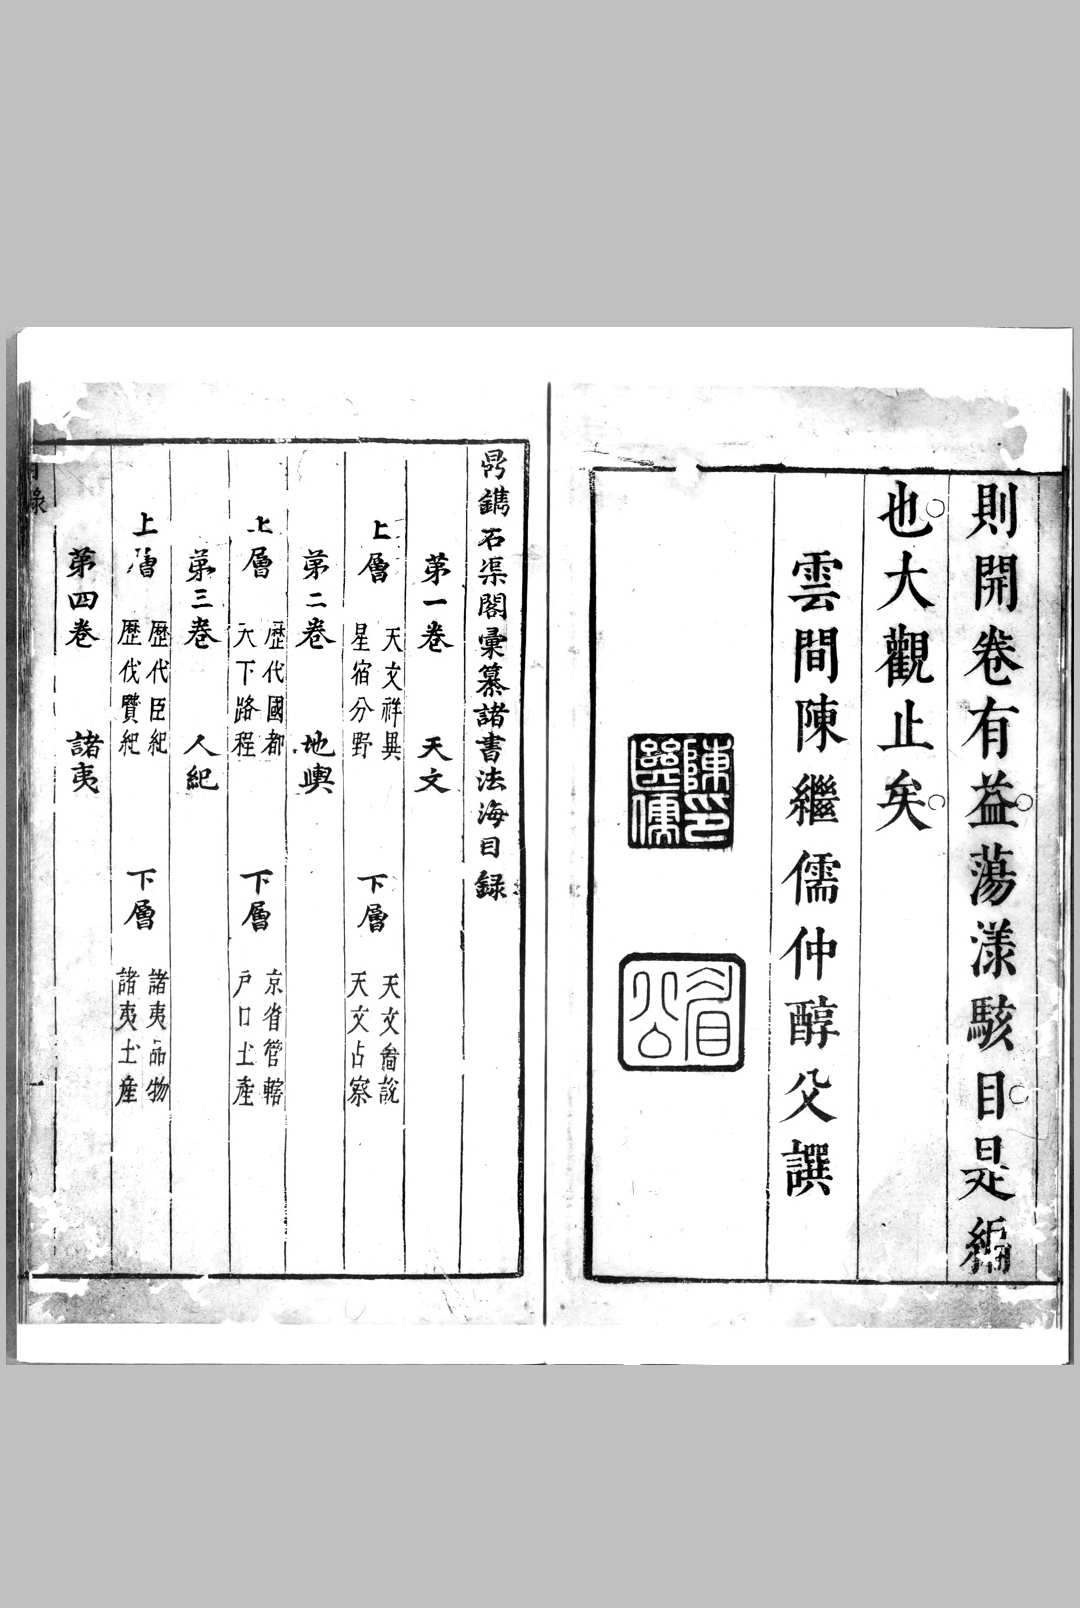 則開卷有益蕩漾駭目是編
也大觀止矣
雲間陳繼儒仲醇父譔
陳印繼儒
眉公
鼎鐫石渠閣彙纂諸書法海目録
苐一卷 天文
上層 天文祥異 星宿分野 下層 天文啚說 天文占察
苐二卷 地輿
上層 歷代國都 天下路程 下層 京省管轄 戸口土產
苐三卷 人紀
上層 歷代臣紀 歷代覽紀 下層 諸夷品物 諸夷土產
苐四卷 諸夷
目録
一